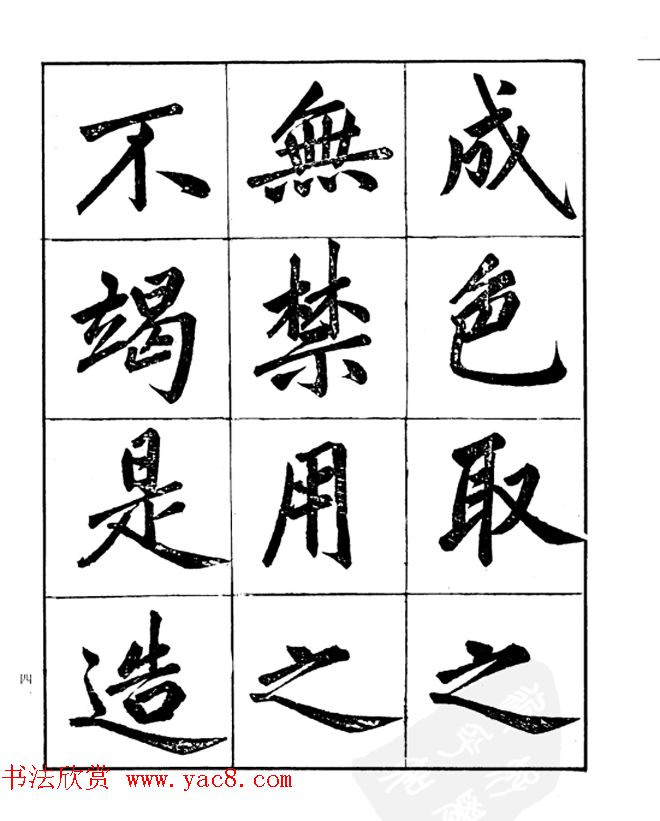 成色取之
無禁用之
不竭是造
四
书法欣赏 www.yac8.com